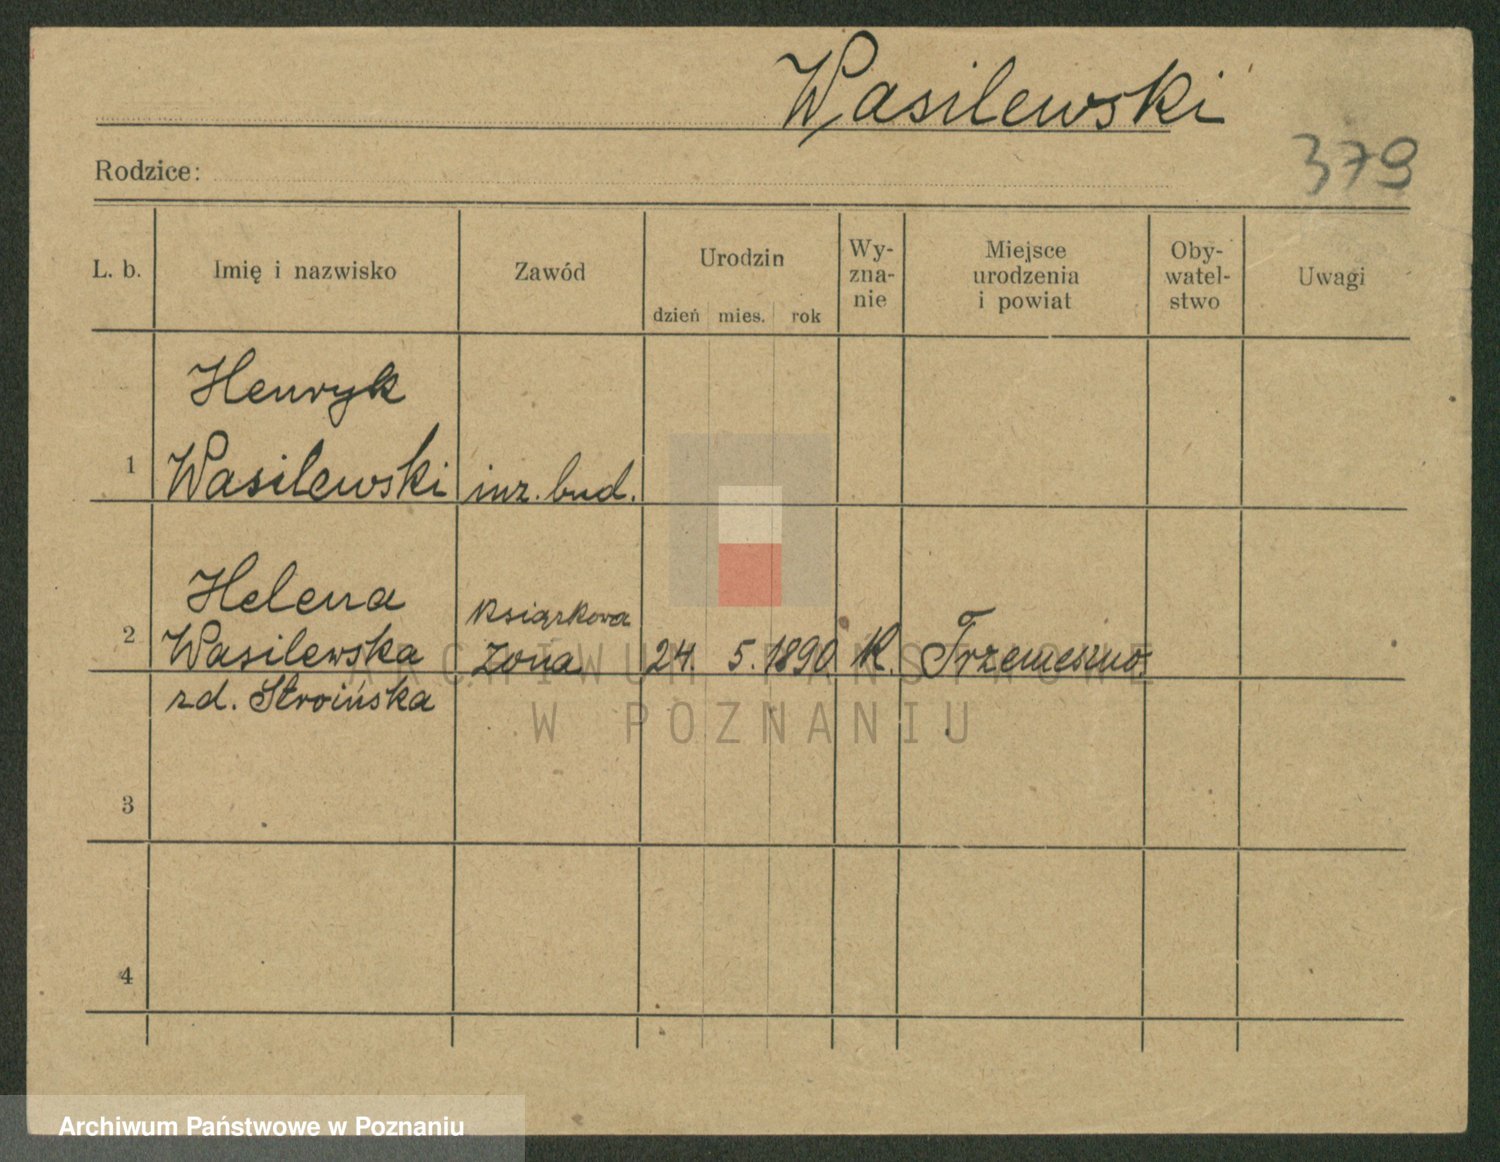 Wasilewski
379
Rodzice:
L. b.
Imię i nazwisko
Zawód
Urodzin
dzień mies. rok
Wy-
zna-
nie
Miejsce
urodzenia
i powiat
Oby-
watel-
stwo
Uwagi
Henryk
1 Wasilewski inż. bud.
Helena
książkowa
2 Wasilewska żona 24. 5. 1890. K. Trzemeszno
zd. Stroińska
ARCHIWUM PAŃSTWOWE
W POZNANIU
3
4
Archiwum Państwowe w Poznaniu